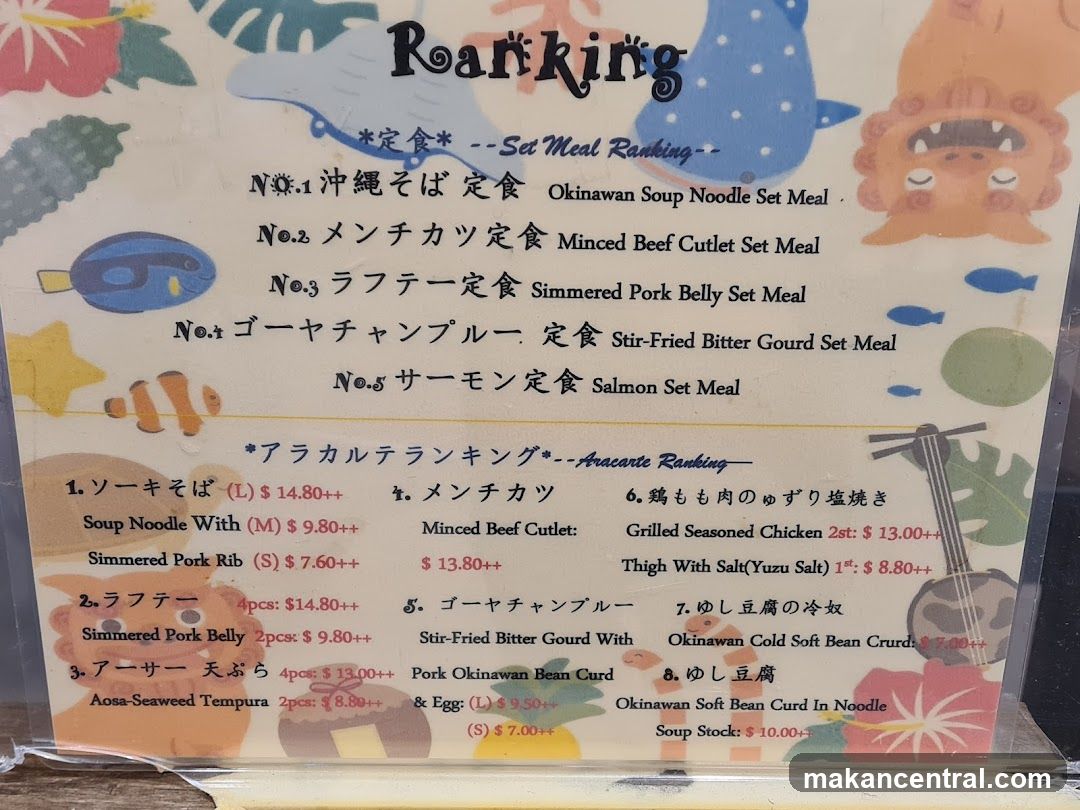 Ranking
*定食* --Set Meal Ranking--
No.1 沖縄そば 定食 Okinawan Soup Noodle Set Meal
No.2 メンチカツ定食 Minced Beef Cutlet Set Meal
No.3 ラフテー定食 Simmered Pork Belly Set Meal
No.4 ゴーヤチャンプルー 定食 Stir-Fried Bitter Gourd Set Meal
No.5 サーモン定食 Salmon Set Meal
*アラカルテランキング*--Aracarte Ranking
1. ソーキそば (L) $ 14.80++
Soup Noodle With (M) $ 9.80++
Simmered Pork Rib (S) $ 7.60++
2. ラフテー 4pcs: $14.80++
Simmered Pork Belly 2pcs: $ 9.80++
3. アーサー 天ぷら 4pcs: $ 13.00++
Aosa-Seaweed Tempura 2pcs: $ 8.80++
4. メンチカツ
Minced Beef Cutlet:
$ 13.80++
5. ゴーヤチャンプルー
Stir-Fried Bitter Gourd With
Pork Okinawan Bean Curd
& Egg: (L) $ 9.50++
(S) $ 7.00++
6. 鶏もも肉のゅずり塩焼き
Grilled Seasoned Chicken 2st: $ 13.00++
Thigh With Salt(Yuzu Salt) 1st: $ 8.80++
7. ゆし豆腐の冷奴
Okinawan Cold Soft Bean Crurd: $ 7.00++
8. ゆし豆腐
Okinawan Soft Bean Curd In Noodle
Soup Stock: $ 10.00++
makancentral.com